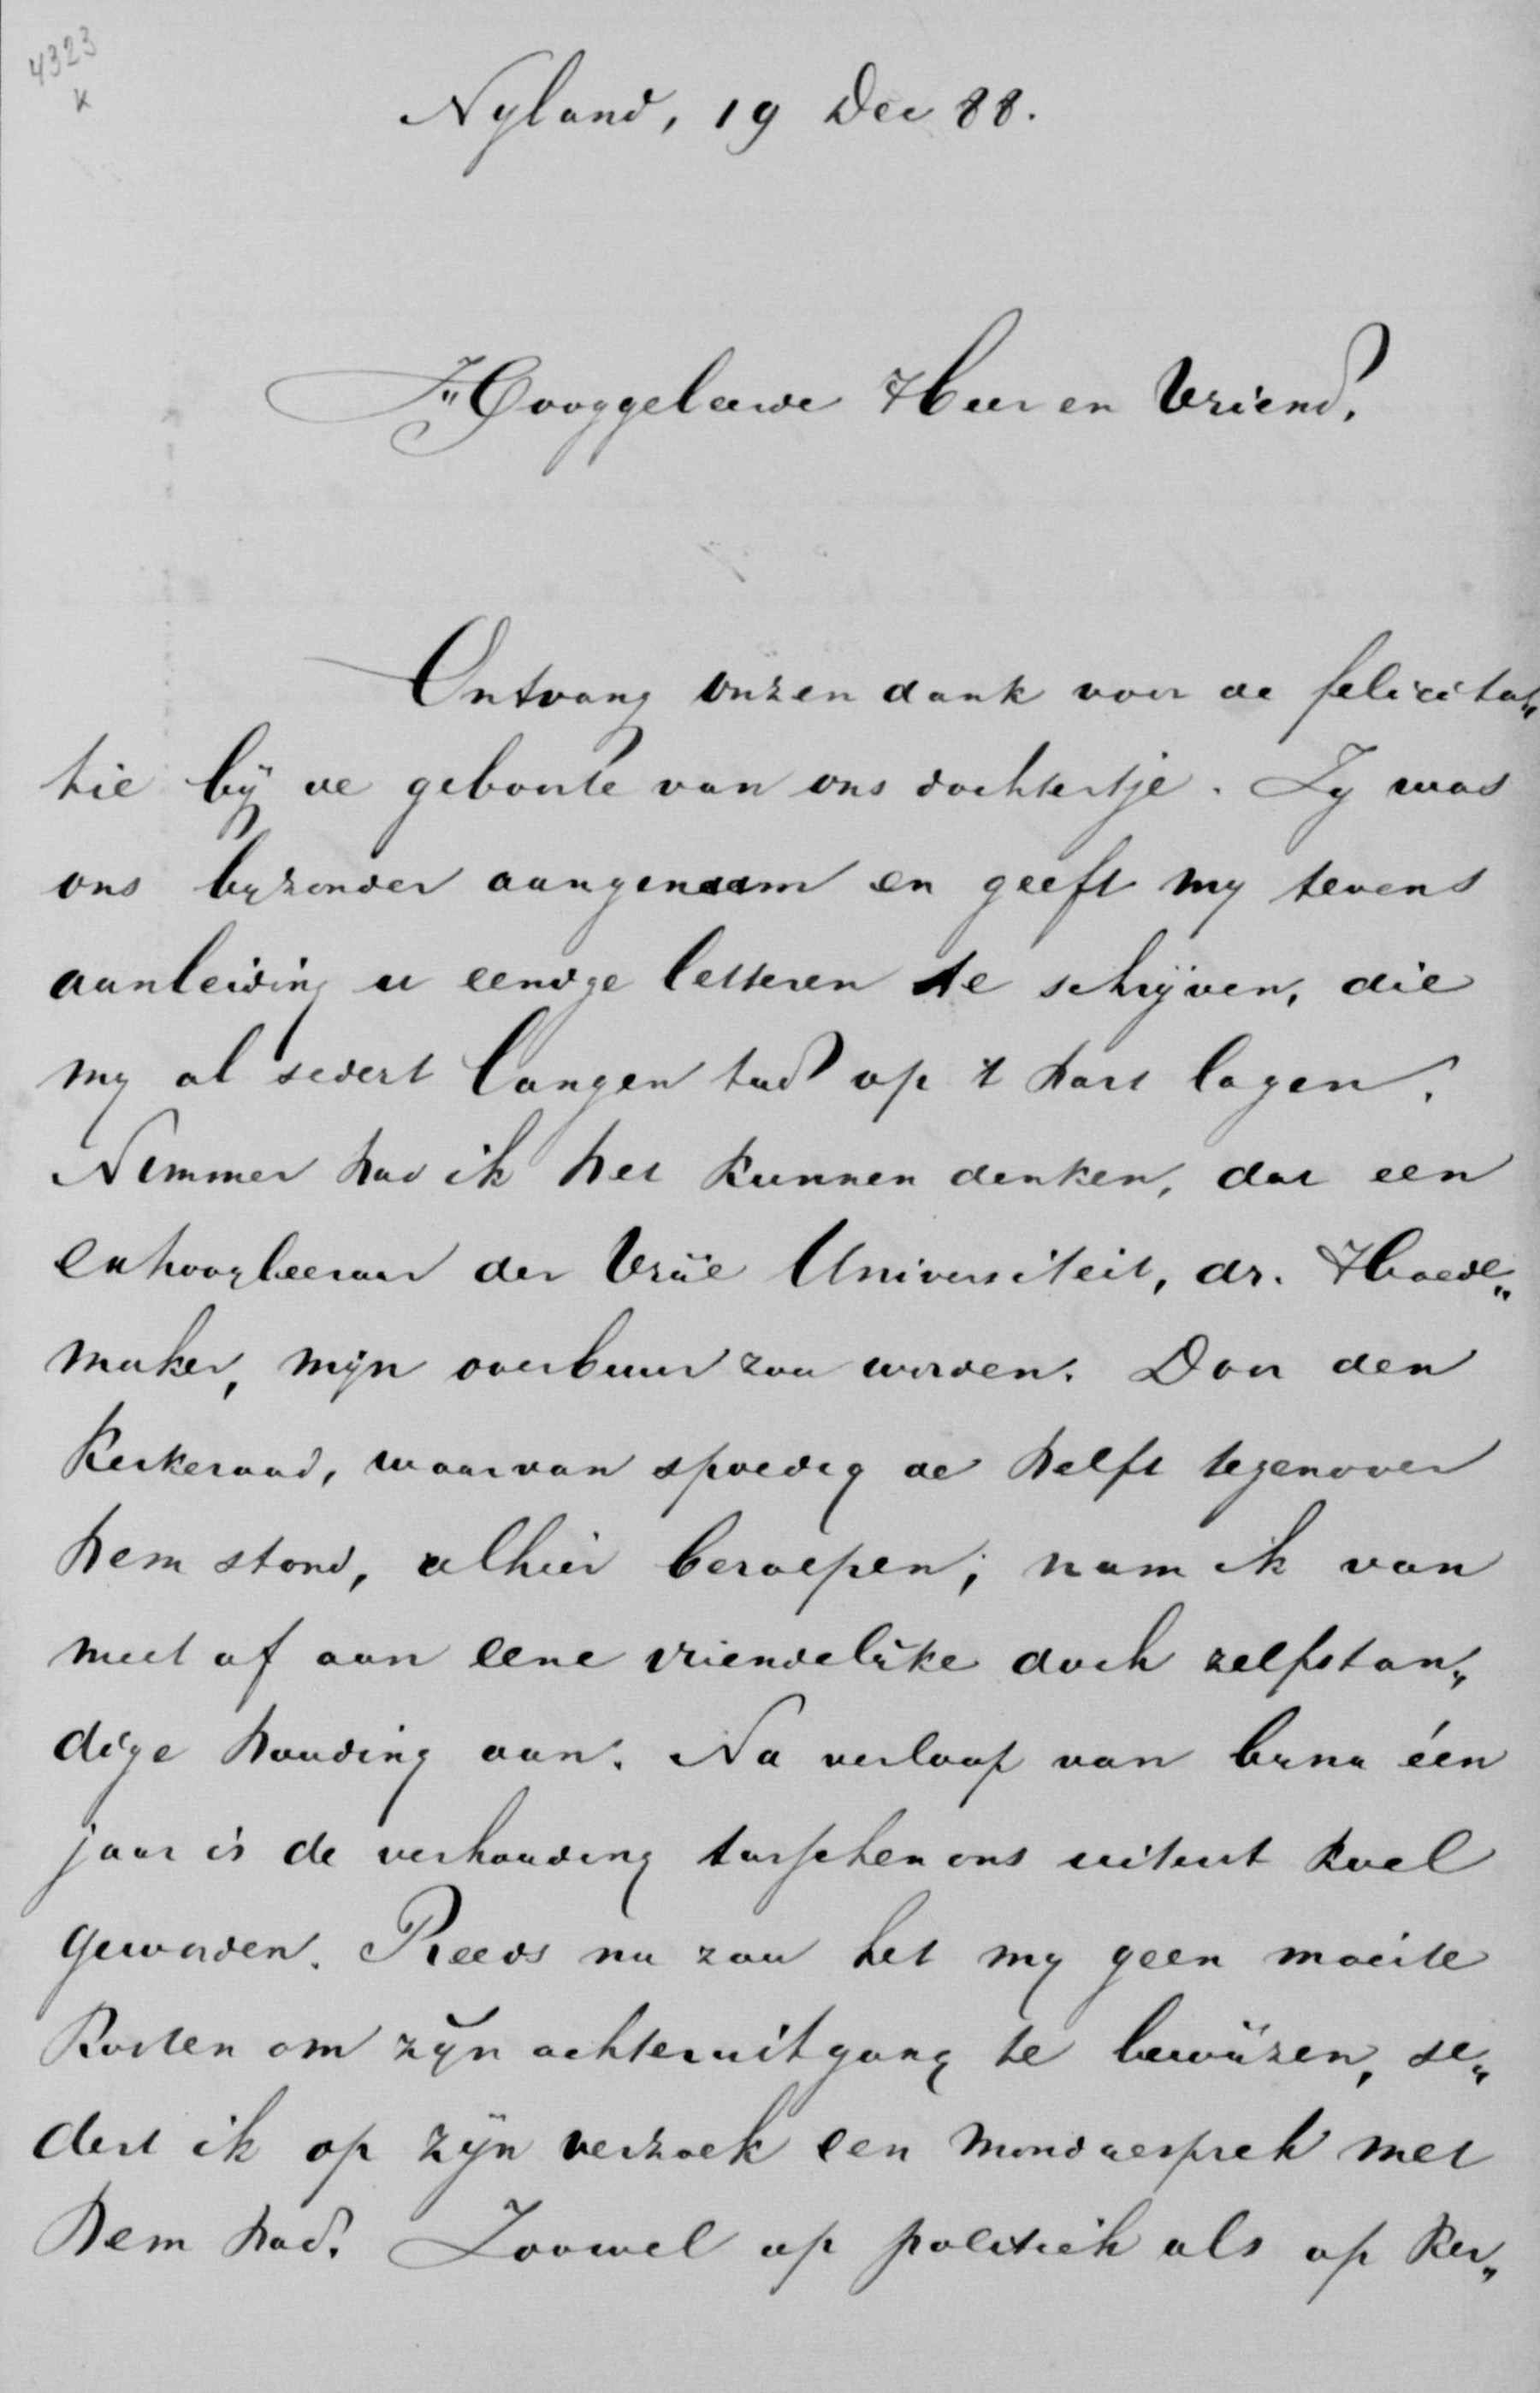 4323
K
Nyland, 19 Dec 88.
Hooggeleerde Heer en Vriend,
Ontvang onzen dank voor de felicita„
tie bij de geboorte van ons dochtertje. Zy was
ons byzonder aangenaam en geeft my tevens
aanleiding u eenige letteren te schrijven, die
my al sedert langen tijd op 't hart lagen.
Nimmer had ik het kunnen denken, dat een
exhoogleeraar der Vrije Universiteit, dr. Hoede„
maker, mijn overbuur zou worden. Door den
Kerkeraad, waarvan spoedig de helft tegenover
hem stond, alhier beroepen; nam ik van
meet af aan eene vriendelijke doch zelfstan„
dige houding aan. Na verloop van bijna één
jaar is de verhouding tusschen ons uiterst koel
geworden. Reeds nu zou het my geen moeite
kosten om zijn achteruitgang te bewijzen, se„
dert ik op zijn verzoek een mondgesprek met
hem had. Zoowel op politiek als op ker„